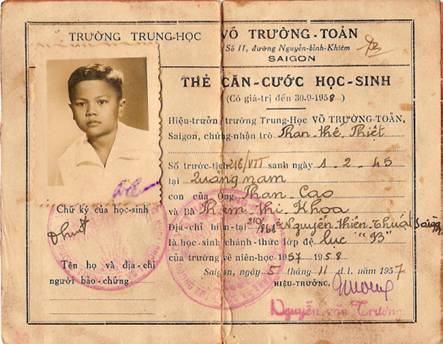 TRƯỜNG TRUNG-HỌC VÕ TRƯỜNG-TOẢN
Số 11, đường Nguyễn-bỉnh-Khiêm
SAIGON
THẺ CĂN-CƯỚC HỌC-SINH
(Có giá-trị đến 30-9-1958)
Hiệu-trưởng trường Trung-Học VÕ TRƯỜNG-TOẢN,
Saigon, chứng-nhận trò Phan thế Thiết
Số trước-tịch 216/VTT sanh ngày 1-2-45
tại Quảng nam
con của Ông Phan Cao
và Bà Phạm thị Khoa
Địa-chỉ hiện-tại Nguyễn Thiện Thuật Saigon
là học-sinh chánh-thức lớp đệ lục "B3"
của trường về niên-học 1957-1958
Saigon, ngày 5 tháng 11 d.l. năm 1957
HIỆU-TRƯỞNG,
Nguyễn văn Trương
Chữ ký của học-sinh
Thiết
Tên họ và địa-chỉ
người bảo-chứng